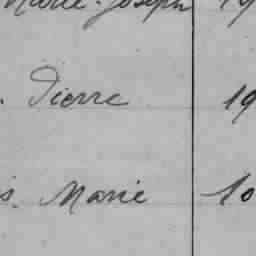 Marie-Joseph 19
. Pierre 19
s. Marie 10